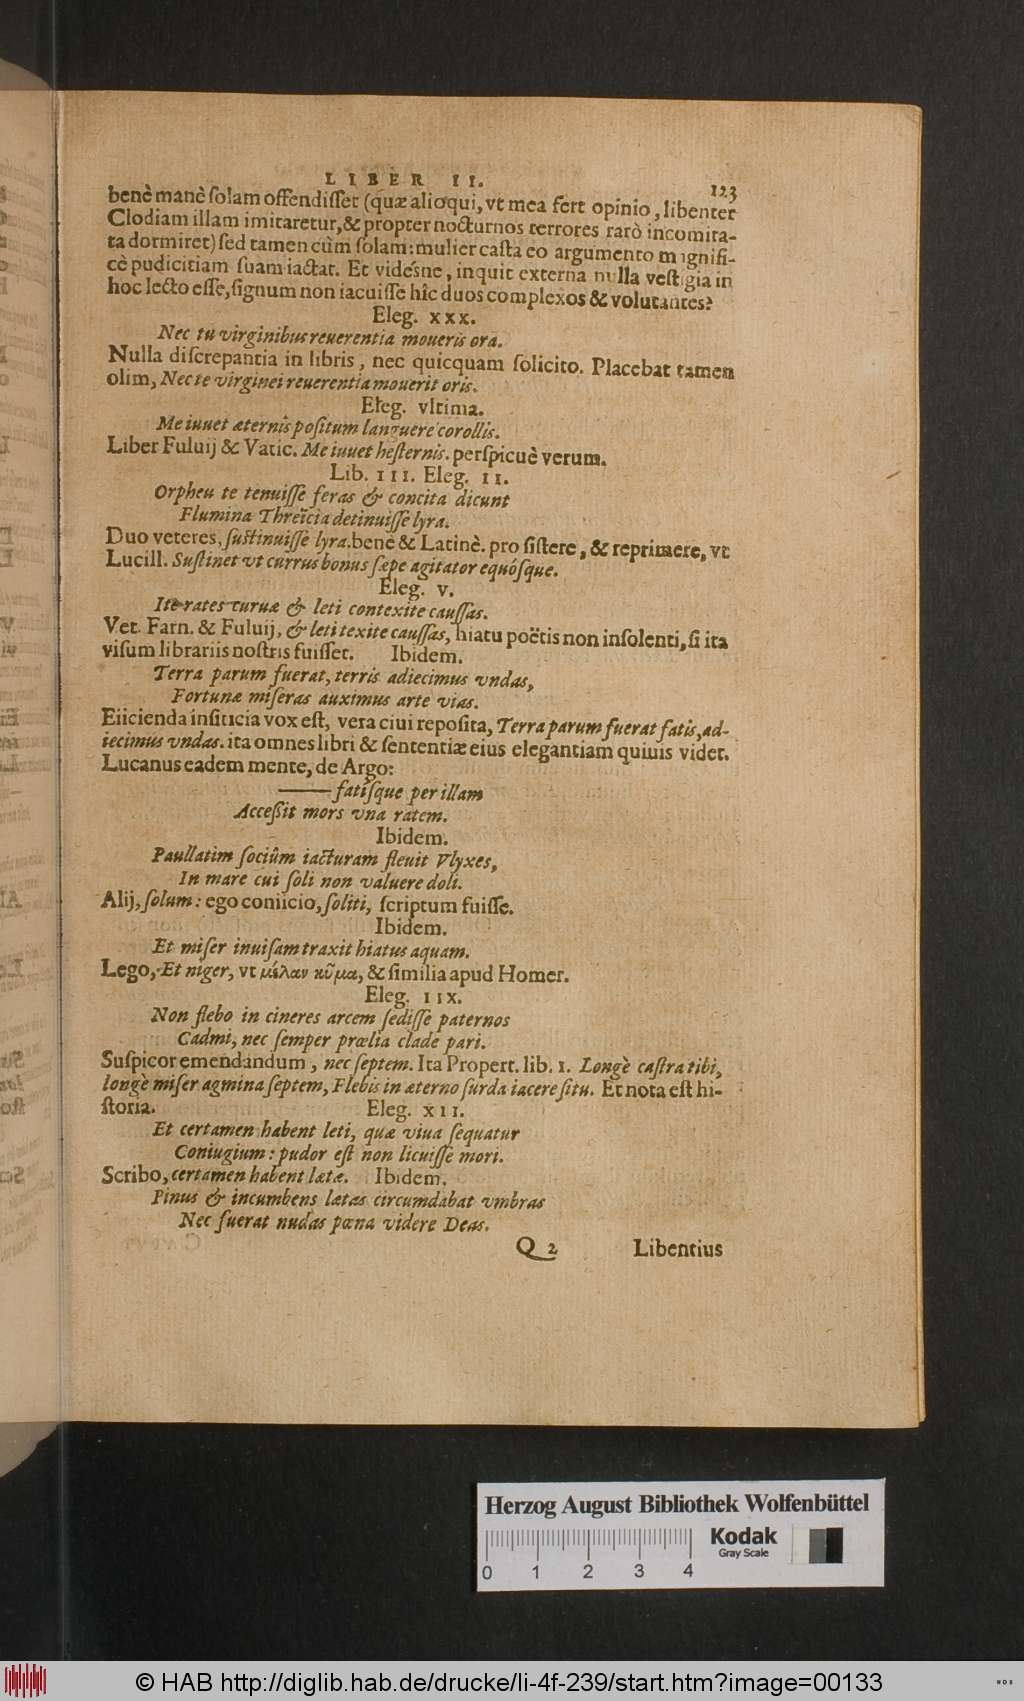 LIBER II. 123
benè manè ſolam offendiſſet (quæ alioqui, vt mea fert opinio, libenter
Clodiam illam imitaretur, & propter nocturnos terrores rarò incomita-
ta dormiret) ſed tamen cùm ſolam: mulier caſta eo argumento magnifi-
cè pudicitiam ſuam iactat. Et videsne, inquit externa nulla veſtigia in
hoc lecto eſſe, ſignum non iacuiſſe hîc duos complexos & volutantes?
Eleg. xxx.
Nec tu virginibus reuerentia moueris ora.
Nulla diſcrepantia in libris, nec quicquam ſolicito. Placebat tamen
olim, Nec te virginei reuerentia mouerit oris.
Eleg. vltima.
Me iuuet æternis poſitum languere corollis.
Liber Fuluij & Vatic. Me iuuet heſternis. perſpicuè verum.
Lib. III. Eleg. II.
Orpheu te tenuiſſe feras & concita dicunt
Flumina Threïcia detinuiſſe lyra.
Duo veteres, ſuſtinuiſſe lyra. benè & Latinè. pro ſiſtere, & reprimere, vt
Lucill. Suſtinet vt currus bonus ſæpe agitator equósque.
Eleg. v.
Ite rates curuæ & leti contexite cauſſas.
Vet. Farn. & Fuluij, & leti texite cauſſas, hiatu poëtis non inſolenti, ſi ita
viſum librariis noſtris fuiſſet. Ibidem.
Terra parum fuerat, terris adiecimus vndas,
Fortunæ miſeras auximus arte vias.
Eiicienda inſiticia vox eſt, vera ciui repoſita, Terra parum fuerat fatis, ad-
iecimus vndas. ita omnes libri & ſententiæ eius elegantiam quiuis videt.
Lucanus eadem mente, de Argo:
—— fatiſque per illam
Acceſſit mors vna ratem.
Ibidem.
Paullatim ſociûm iacturam fleuit Vlyxes,
In mare cui ſoli non valuere doli.
Alij, ſolum: ego coniicio, ſoliti, ſcriptum fuiſſe.
Ibidem.
Et miſer inuiſam traxit hiatus aquam.
Lego, Et niger, vt μέλαν κῦμα, & ſimilia apud Homer.
Eleg. IIX.
Non flebo in cineres arcem ſediſſe paternos
Cadmi, nec ſemper prœlia clade pari.
Suſpicor emendandum, nec ſeptem. Ita Propert. lib. I. Longè caſtra tibi,
longè miſer agmina ſeptem, Flebis in æterno ſurda iacere ſitu. Et nota eſt hi-
ſtoria. Eleg. XII.
Et certamen habent leti, quæ viua ſequatur
Coniugium: pudor eſt non licuiſſe mori.
Scribo, certamen habent lætæ. Ibidem.
Pinus & incumbens lætas circumdabat vmbras
Nec fuerat nudas pœna videre Deas.
Q 2 Libentius
Herzog August Bibliothek Wolfenbüttel
Kodak
Gray Scale
0 1 2 3 4
© HAB http://diglib.hab.de/drucke/li-4f-239/start.htm?image=00133